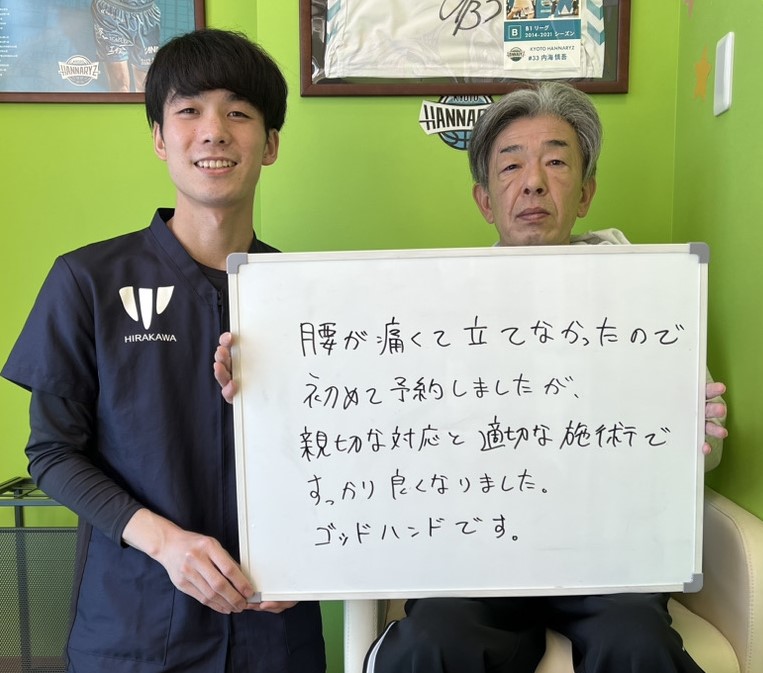 HANNARYZ
B
B1リーグ
2014-2021 シーズン
KYOTO HANNARYZ
#33 内海 慎吾
KYOTO
HANNARYZ
HIRAKAWA
腰が痛くて立てなかったので
初めて予約しましたが、
親切な対応と適切な施術で
すっかり良くなりました。
ゴッドハンドです。